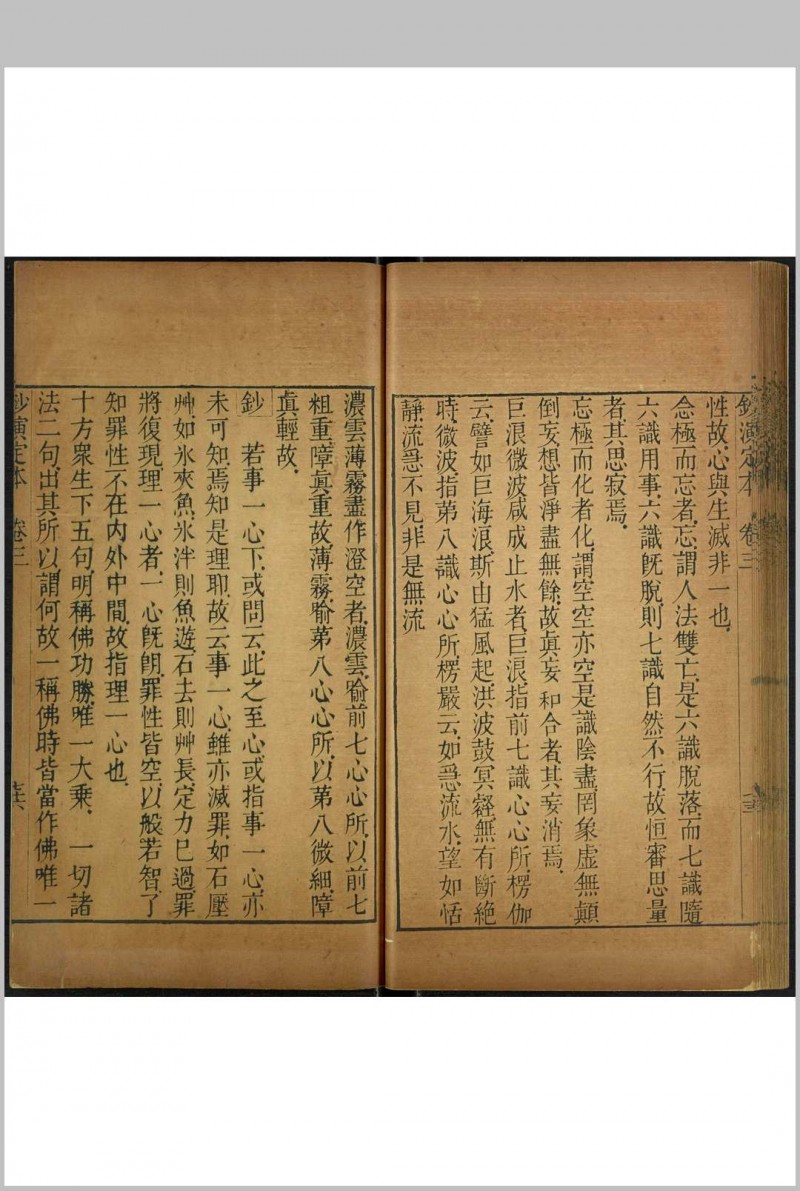 鈔演定本 卷三
性故、心與生滅非一也、
念極而忘者、忘謂人法雙亡、是六識脫落、而七識隨
六識用事、六識旣脫、則七識自然不行、故恒審思量
者、其思寂焉、
忘極而化者、化謂空空亦空、是識陰盡、罔象虛無、顚
倒妄想、皆淨盡無餘、故眞妄和合者、其妄消焉、
巨浪微波咸成止水者、巨浪指前七識心心所、楞伽
云、譬如巨海浪、斯由猛風起、洪波鼓冥壑、無有斷絶
時、微波指第八識心心所、楞嚴云、如急流水、望如恬
靜、流急不見、非是無流
濃雲薄霧盡作澄空者、濃雲喻前七心心所、以前七
粗重、障眞重故、薄霧喻第八心心所、以第八微細、障
眞輕故、
鈔 若事一心下、或問云、此之至心、或指事一心、亦
未可知、焉知是理耶、故云事一心、雖亦滅罪、如石壓
艸、如氷夾魚、氷泮則魚遊、石去則艸長、定力已過、罪
將復現、理一心者、一心旣朗、罪性皆空、以般若智、了
知罪性不在內外中間、故指理一心也、
十方衆生下五句、明稱佛功勝、唯一大乘、一切諸
法二句、出其所以、謂何故一稱佛時、皆當作佛、唯一
鈔演定本 卷三